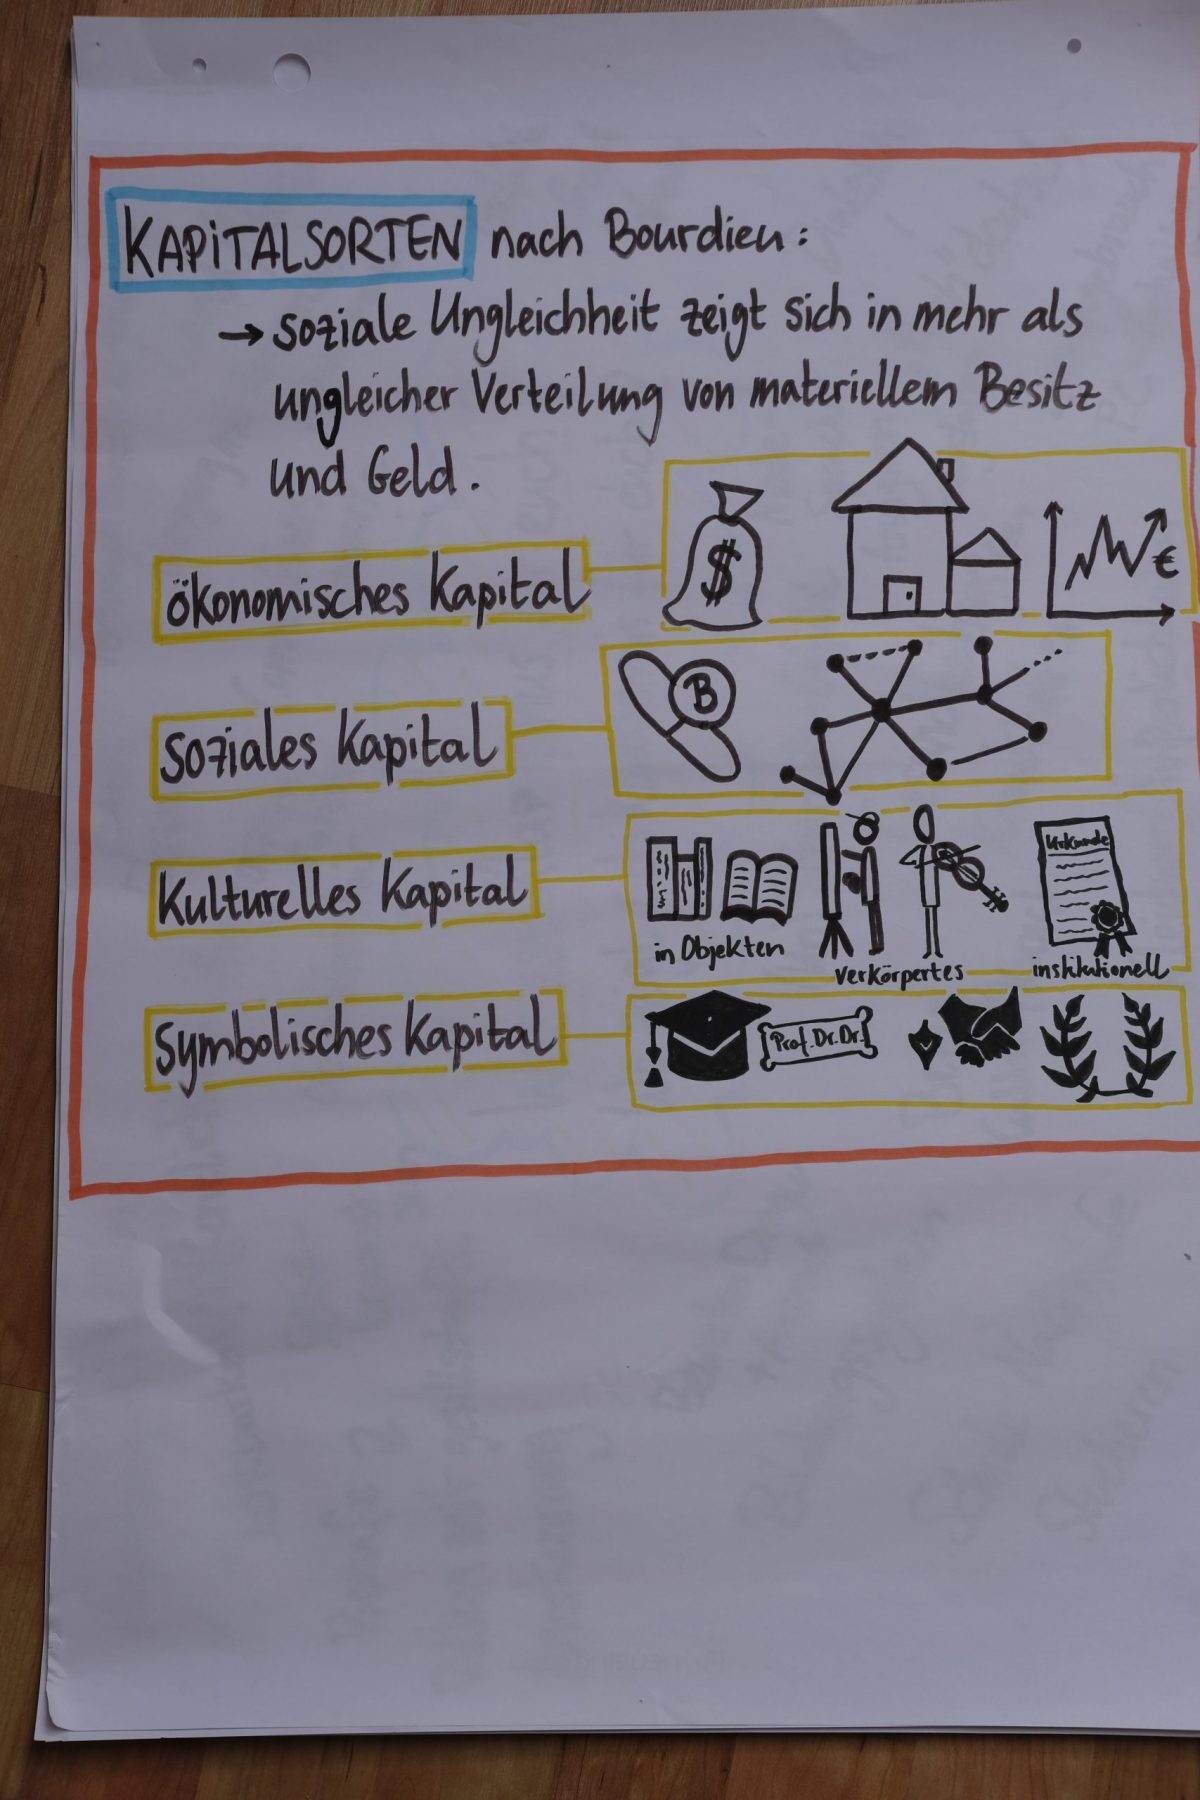 KAPITALSORTEN nach Bourdieu:
→ soziale Ungleichheit zeigt sich in mehr als
ungleicher Verteilung von materiellem Besitz
und Geld.
ökonomisches Kapital
$
€
soziales Kapital
B
Kulturelles Kapital
Urkunde
in Objekten
verkörpertes
institutionell
symbolisches Kapital
Prof. Dr. Dr.